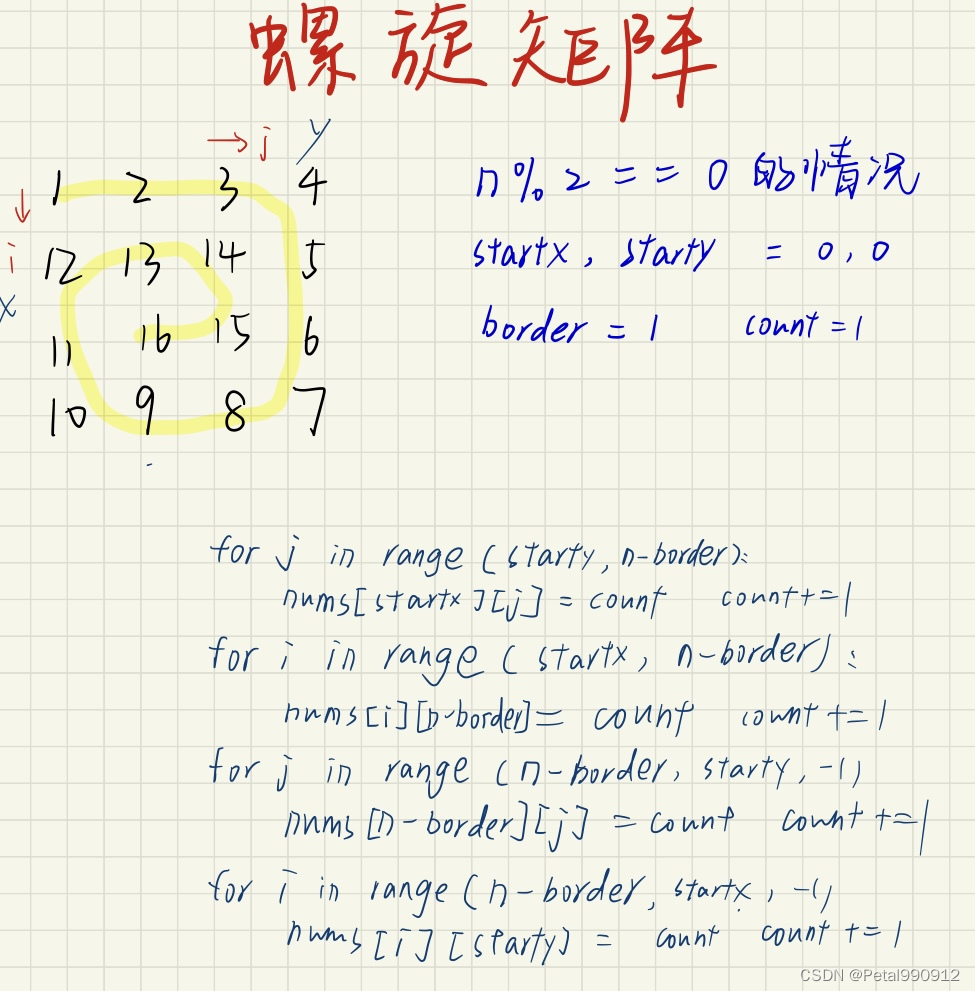 螺旋矩阵
→ j y
1 2 3 4
↓
i
12 13 14 5
x
11 16 15 6
10 9 8 7
n%2==0的情况
startx, starty = 0, 0
border = 1 count = 1
for j in range (starty, n-border):
nums[startx][j] = count count+=1
for i in range (startx, n-border):
nums[i][n-border] = count count+=1
for j in range (n-border, starty, -1)
nums[n-border][j] = count count+=1
for i in range (n-border, startx, -1)
nums[i][starty] = count count+=1
CSDN @Petal990912